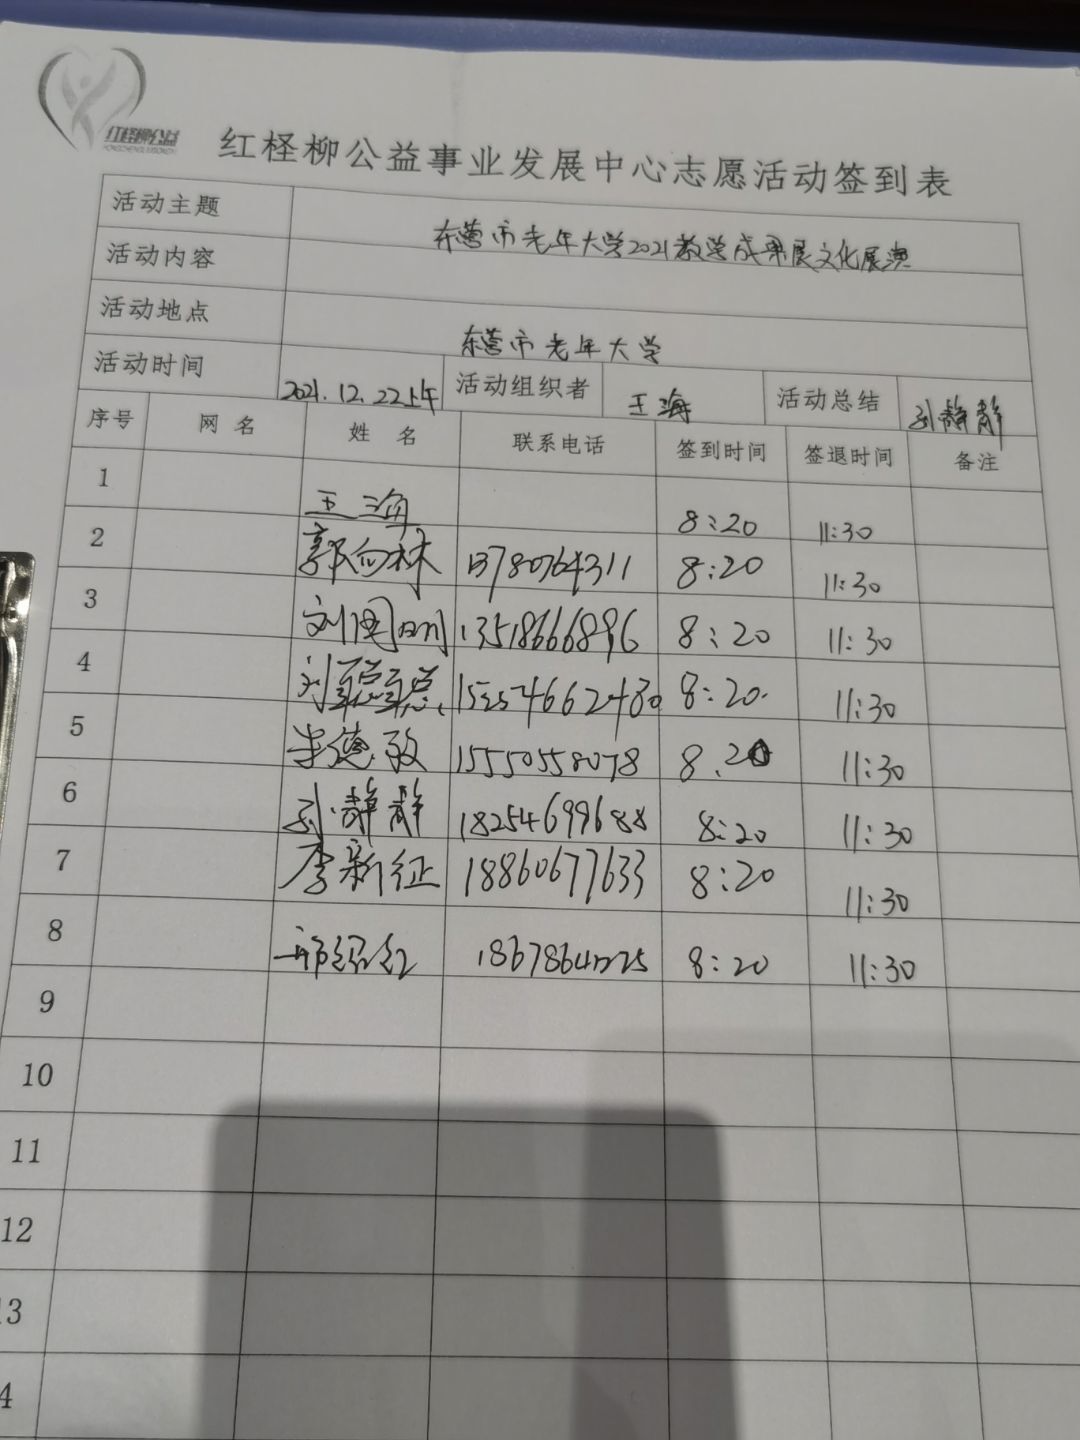 红柽柳公益
红柽柳公益事业发展中心志愿活动签到表
活动主题 东营市老年大学2021教学成果展文化展演
活动内容
活动地点 东营市老年大学
活动时间 2021.12.22上午 活动组织者 王海 活动总结 孙静静
序号 网名 姓名 联系电话 签到时间 签退时间 备注
1 王海 8:20 11:30
2 郭向林 13780764311 8:20 11:30
3 刘国明 13518666896 8:20 11:30
4 刘聪聪 15254662480 8:20 11:30
5 李德敬 15550558078 8:20 11:30
6 孙静静 18254699688 8:20 11:30
7 李新征 18860677633 8:20 11:30
8 邢绍红 8:20 11:30
9
10
11
12
13
4